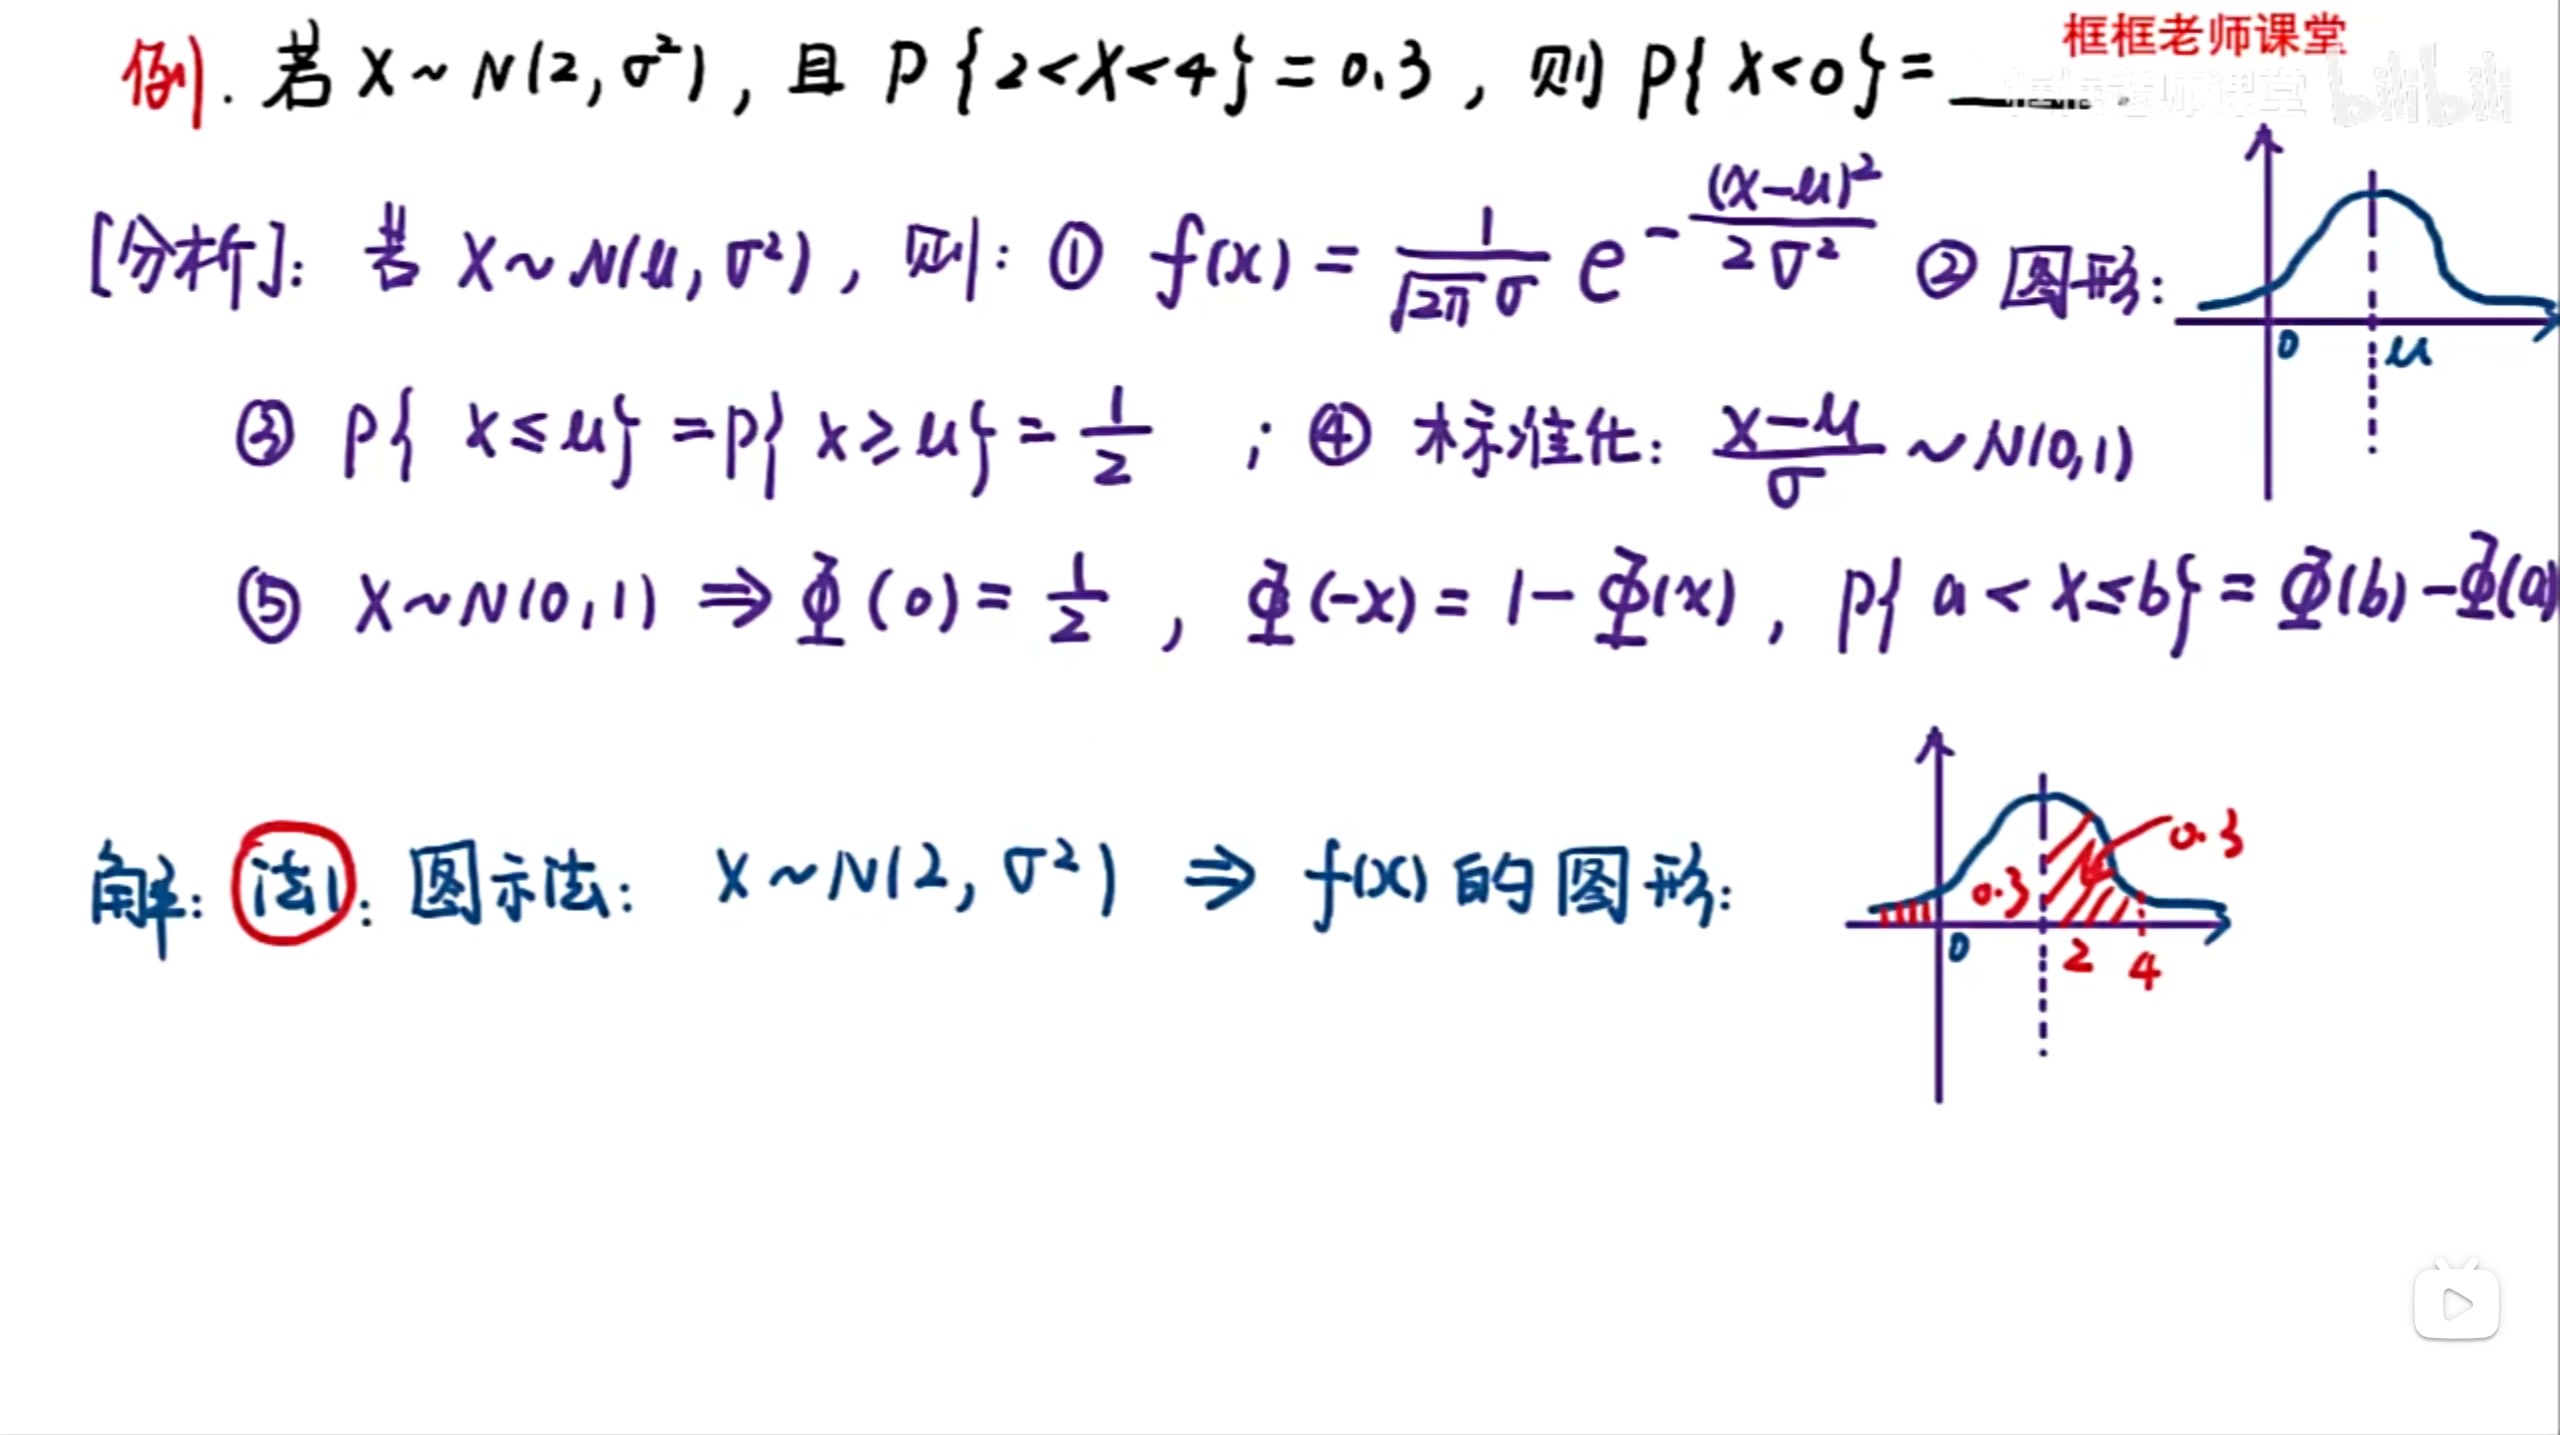 框框老师课堂
例. 若 X~N(2, σ²), 且 P{2<X<4}=0.3, 则 P{X<0}=____.
框框老师课堂 bilibili
[分析]: 若 X~N(μ, σ²), 则: ① f(x) = \frac{1}{\sqrt{2π}σ} e^{-\frac{(x-μ)²}{2σ²}} ② 图形:
0 μ
③ P{X≤μ}=P{X≥μ}=\frac{1}{2} ; ④ 标准化: \frac{X-μ}{σ} ~N(0,1)
⑤ X~N(0,1) ⇒ Φ(0)=\frac{1}{2}, Φ(-x)=1-Φ(x), P{a<X≤b}=Φ(b)-Φ(a)
解: 法1: 图示法: X~N(2, σ²) ⇒ f(x)的图形:
0.3
0.3
0 2 4